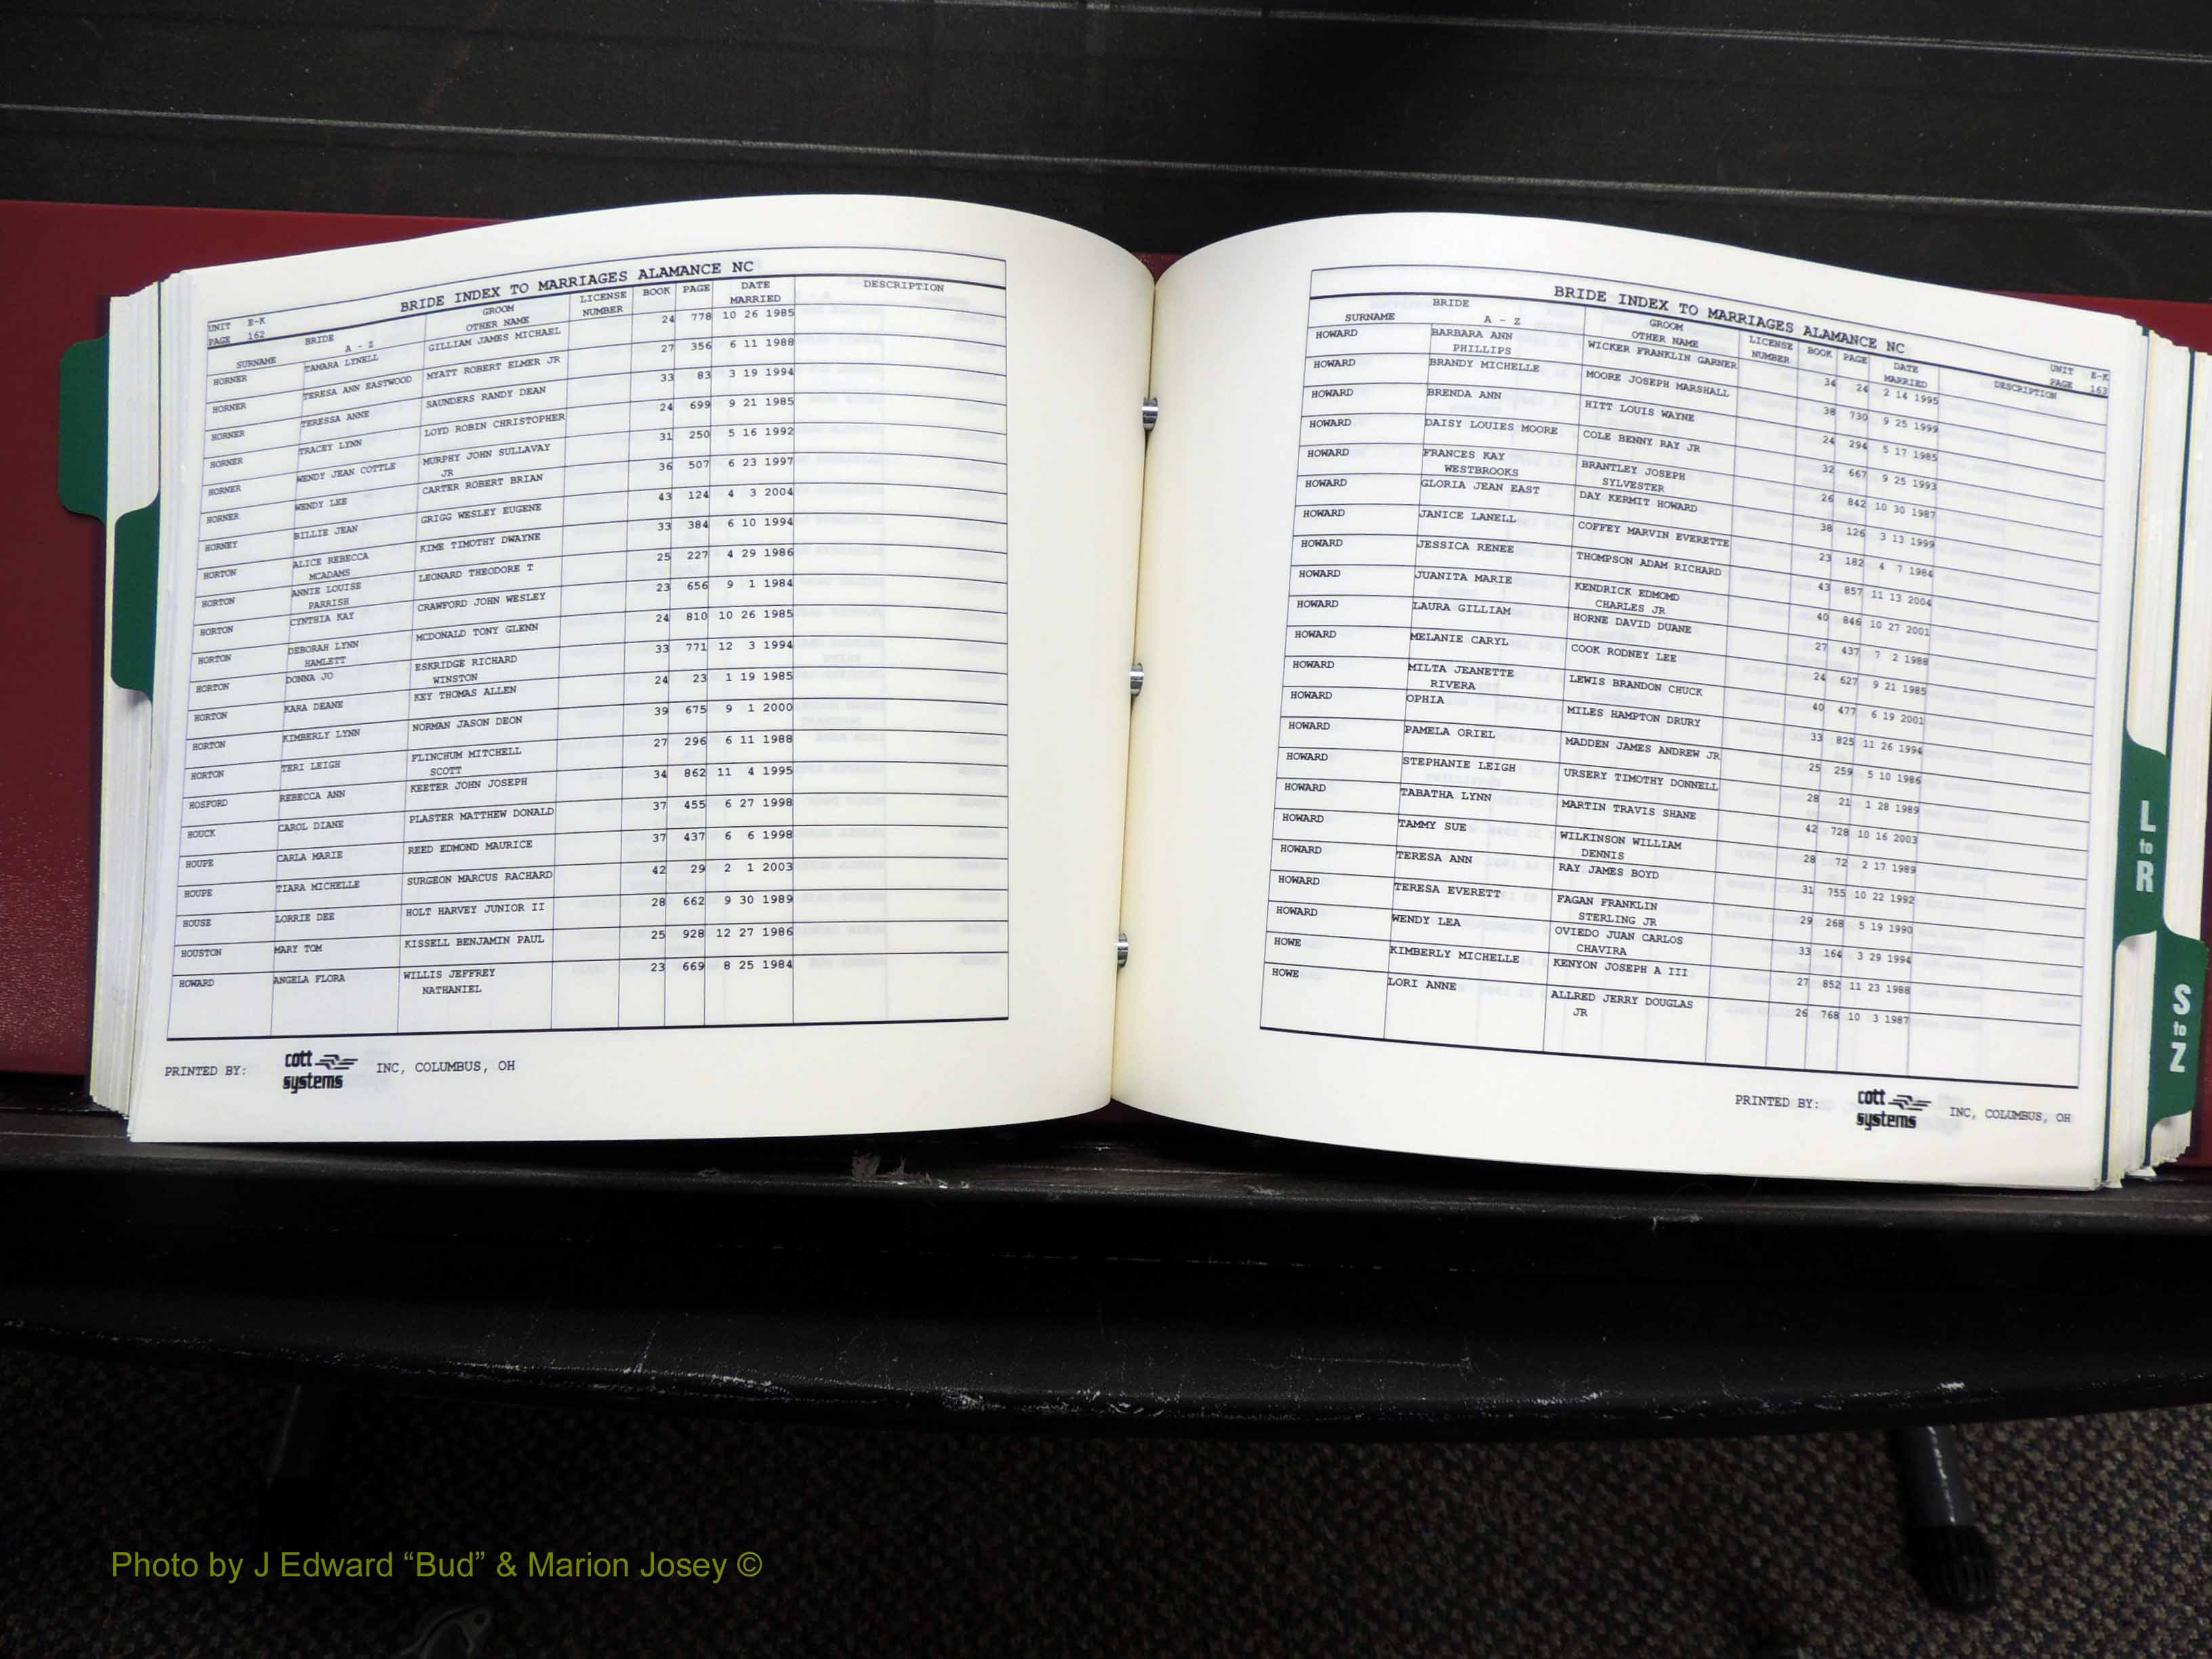 BRIDE INDEX TO MARRIAGES ALAMANCE NC
UNIT E-K
PAGE 162
SURNAME BRIDE A - Z GROOM OTHER NAME LICENSE NUMBER BOOK PAGE DATE MARRIED DESCRIPTION
HORNER TAMARA LYNELL GILLIAM JAMES MICHAEL 24 778 10 26 1985
HORNER TERESA ANN EASTWOOD MYATT ROBERT ELMER JR 27 356 6 11 1988
HORNER TERESSA ANNE SAUNDERS RANDY DEAN 33 83 3 19 1994
HORNER TRACEY LYNN LOYD ROBIN CHRISTOPHER 24 699 9 21 1985
HORNER WENDY JEAN COTTLE MURPHY JOHN SULLAVAY JR 31 250 5 16 1992
HORNER WENDY LEE CARTER ROBERT BRIAN 36 507 6 23 1997
HORNEY BILLIE JEAN GRIGG WESLEY EUGENE 43 124 4 3 2004
HORTON ALICE REBECCA MCADAMS KIME TIMOTHY DWAYNE 33 384 6 10 1994
HORTON ANNIE LOUISE PARRISH LEONARD THEODORE T 25 227 4 29 1986
HORTON CYNTHIA KAY CRAWFORD JOHN WESLEY 23 656 9 1 1984
HORTON DEBORAH LYNN HAMLETT MCDONALD TONY GLENN 24 810 10 26 1985
HORTON DONNA JO ESKRIDGE RICHARD WINSTON 33 771 12 3 1994
HORTON KARA DEANE KEY THOMAS ALLEN 24 23 1 19 1985
HORTON KIMBERLY LYNN NORMAN JASON DEON 39 675 9 1 2000
HORTON TERI LEIGH FLINCHUM MITCHELL SCOTT 27 296 6 11 1988
HOSFORD REBECCA ANN KEETER JOHN JOSEPH 34 862 11 4 1995
HOUCK CAROL DIANE PLASTER MATTHEW DONALD 37 455 6 27 1998
HOUPE CARLA MARIE REED EDMOND MAURICE 37 437 6 6 1998
HOUPE TIARA MICHELLE SURGEON MARCUS RACHARD 42 29 2 1 2003
HOUSE LORRIE DEE HOLT HARVEY JUNIOR II 28 662 9 30 1989
HOUSTON MARY TOM KISSELL BENJAMIN PAUL 25 928 12 27 1986
HOWARD ANGELA FLORA WILLIS JEFFREY NATHANIEL 23 669 8 25 1984
PRINTED BY: cott systems INC, COLUMBUS, OH
BRIDE INDEX TO MARRIAGES ALAMANCE NC
UNIT E-K
PAGE 163
SURNAME BRIDE A - Z GROOM OTHER NAME LICENSE NUMBER BOOK PAGE DATE MARRIED DESCRIPTION
HOWARD BARBARA ANN PHILLIPS WICKER FRANKLIN GARNER 34 24 2 14 1995
HOWARD BRANDY MICHELLE MOORE JOSEPH MARSHALL 38 730 9 25 1999
HOWARD BRENDA ANN HITT LOUIS WAYNE 24 294 5 17 1985
HOWARD DAISY LOUIES MOORE COLE BENNY RAY JR 32 667 9 25 1993
HOWARD FRANCES KAY WESTBROOKS BRANTLEY JOSEPH SYLVESTER 26 842 10 30 1987
HOWARD GLORIA JEAN EAST DAY KERMIT HOWARD 38 126 3 13 1999
HOWARD JANICE LANELL COFFEY MARVIN EVERETTE 23 182 4 7 1984
HOWARD JESSICA RENEE THOMPSON ADAM RICHARD 43 857 11 13 2004
HOWARD JUANITA MARIE KENDRICK EDMOMD CHARLES JR 40 846 10 27 2001
HOWARD LAURA GILLIAM HORNE DAVID DUANE 27 437 7 2 1988
HOWARD MELANIE CARYL COOK RODNEY LEE 24 627 9 21 1985
HOWARD MILTA JEANETTE RIVERA LEWIS BRANDON CHUCK 40 477 6 19 2001
HOWARD OPHIA MILES HAMPTON DRURY 33 825 11 26 1994
HOWARD PAMELA ORIEL MADDEN JAMES ANDREW JR 25 259 5 10 1986
HOWARD STEPHANIE LEIGH URSERY TIMOTHY DONNELL 28 21 1 28 1989
HOWARD TABATHA LYNN MARTIN TRAVIS SHANE 42 728 10 16 2003
HOWARD TAMMY SUE WILKINSON WILLIAM DENNIS 28 72 2 17 1989
HOWARD TERESA ANN RAY JAMES BOYD 31 755 10 22 1992
HOWARD TERESA EVERETT FAGAN FRANKLIN STERLING JR 29 268 5 19 1990
HOWARD WENDY LEA OVIEDO JUAN CARLOS CHAVIRA 33 164 3 29 1994
HOWE KIMBERLY MICHELLE KENYON JOSEPH A III 27 852 11 23 1988
HOWE LORI ANNE ALLRED JERRY DOUGLAS JR 26 768 10 3 1987
PRINTED BY: cott systems INC, COLUMBUS, OH
L to R
S to Z
Photo by J Edward “Bud” & Marion Josey ©